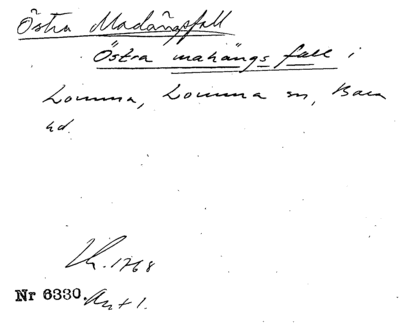 Östra Madängsfall
Östra mahängs fall i
Lomma, Lomma sn, Bara
hd.
Lh. 1768
Nr 6330. Av+ 1.